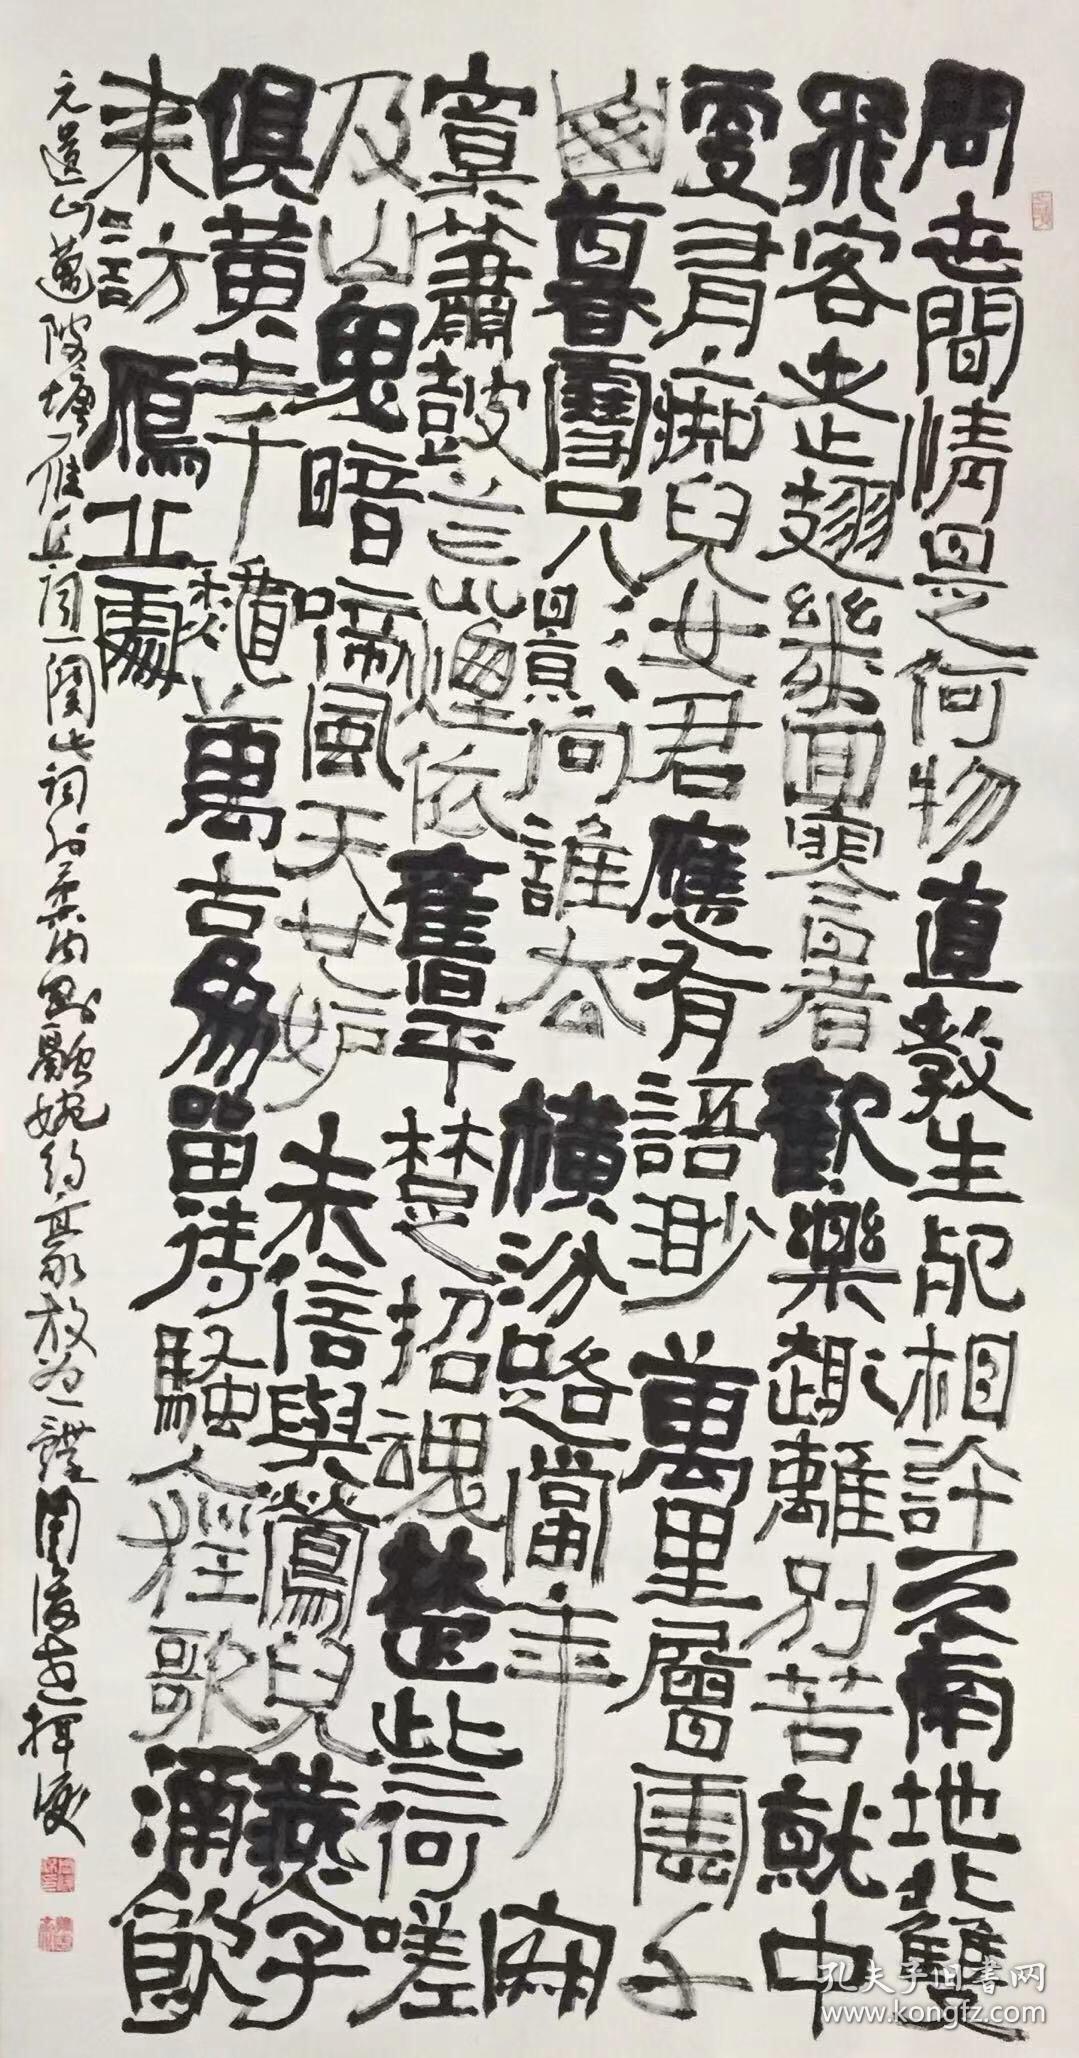 問世間情是何物直教生死相許天南地北雙
飛客走翅幾回寒暑歡樂趣離別苦就中
更有癡兒女君應有語渺萬里層雲千
山暮雪只影向誰去橫汾路當年寂
寞簫鼓荒煙依舊平楚招魂楚些何嗟
及山鬼暗啼風天也妒未信與鶯兒燕子
俱黃土千秋萬古為留待騷人狂歌痛飲
來訪雁丘處
元遺山邁陂塘雁丘詞一闋此詞外柔內剛融婉約豪放為一體周俊杰揮
孔夫子旧书网
www.kongfz.com